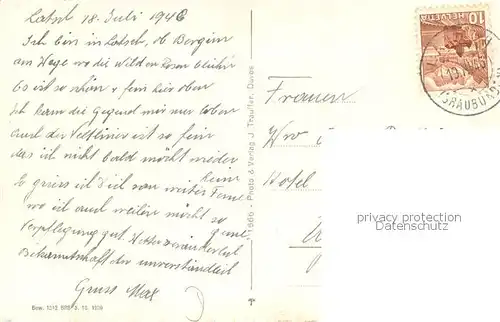 Latsch 18. Juli 1946
Ich bin in Latsch, ob Bergün
am Hage wo die wilden Rosen blühn
Es ist so schön & fein hier oben
Ich kann die Gegend nur loben
auch der Veltliner ist so fein
das ich nicht bald möcht wieder heim
So griess ich Dich von weiter Ferne
wo ich auch weilen möcht so gerne
Verpflegung gut, Wetter veränderlich
Bekanntschaft der unverständlich
Gruss Max
Bew. 1012 S. 10. 1939
11866 - Photo & Verlag J. Trauffer, Davos
HELVETIA
10
(GRAUBÜND.)
Frauen
Wwe
Hotel
privacy protection
Datenschutz